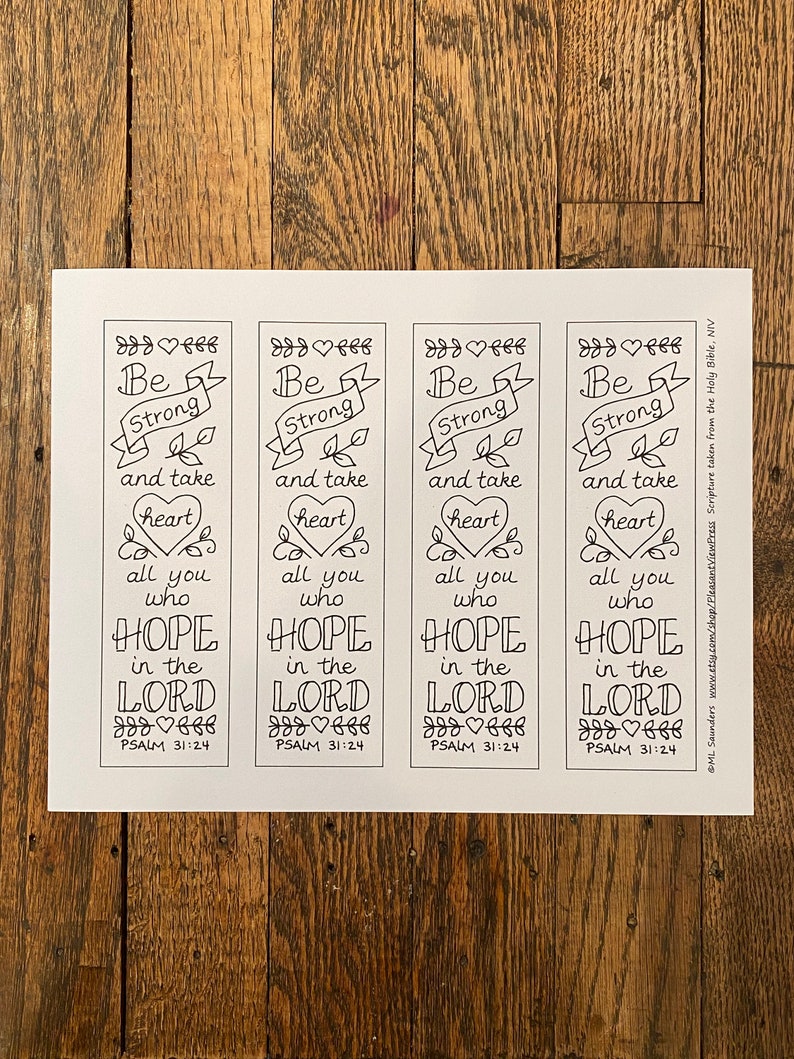 Be
Strong
and take
heart
all you
who
HOPE
in the
LORD
PSALM 31:24
Be
Strong
and take
heart
all you
who
HOPE
in the
LORD
PSALM 31:24
Be
Strong
and take
heart
all you
who
HOPE
in the
LORD
PSALM 31:24
Be
Strong
and take
heart
all you
who
HOPE
in the
LORD
PSALM 31:24
©ML Saunders www.etsy.com/shop/PleasantViewPress Scripture taken from the Holy Bible, NIV